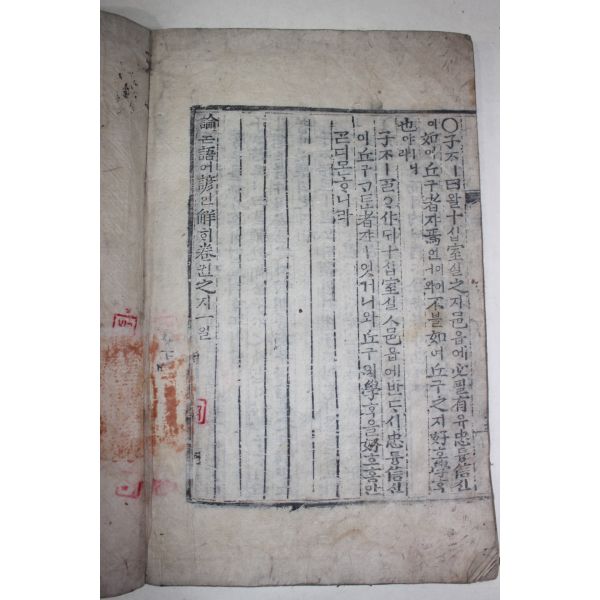 ○子ᄌᆞㅣ曰왈十십室실之지邑읍에必필有유忠튱信신
이如여丘구者쟈焉언이어니와不블如여丘구之지好호學ᄒᆞᆨ
也야ㅣ니라
子ᄌᆞㅣᄀᆞᆯᄋᆞ샤ᄃᆡ十십室실ㅅ邑읍에반ᄃᆞ시忠튱信신
이丘구ᄀᆞᄐᆞᆫ者쟈ㅣ잇거니와丘구의學ᄒᆞᆨ을好호홈만
ᄀᆞᆮ디몯ᄒᆞ니라
論론語어諺언解ᄒᆡ卷권之지一일